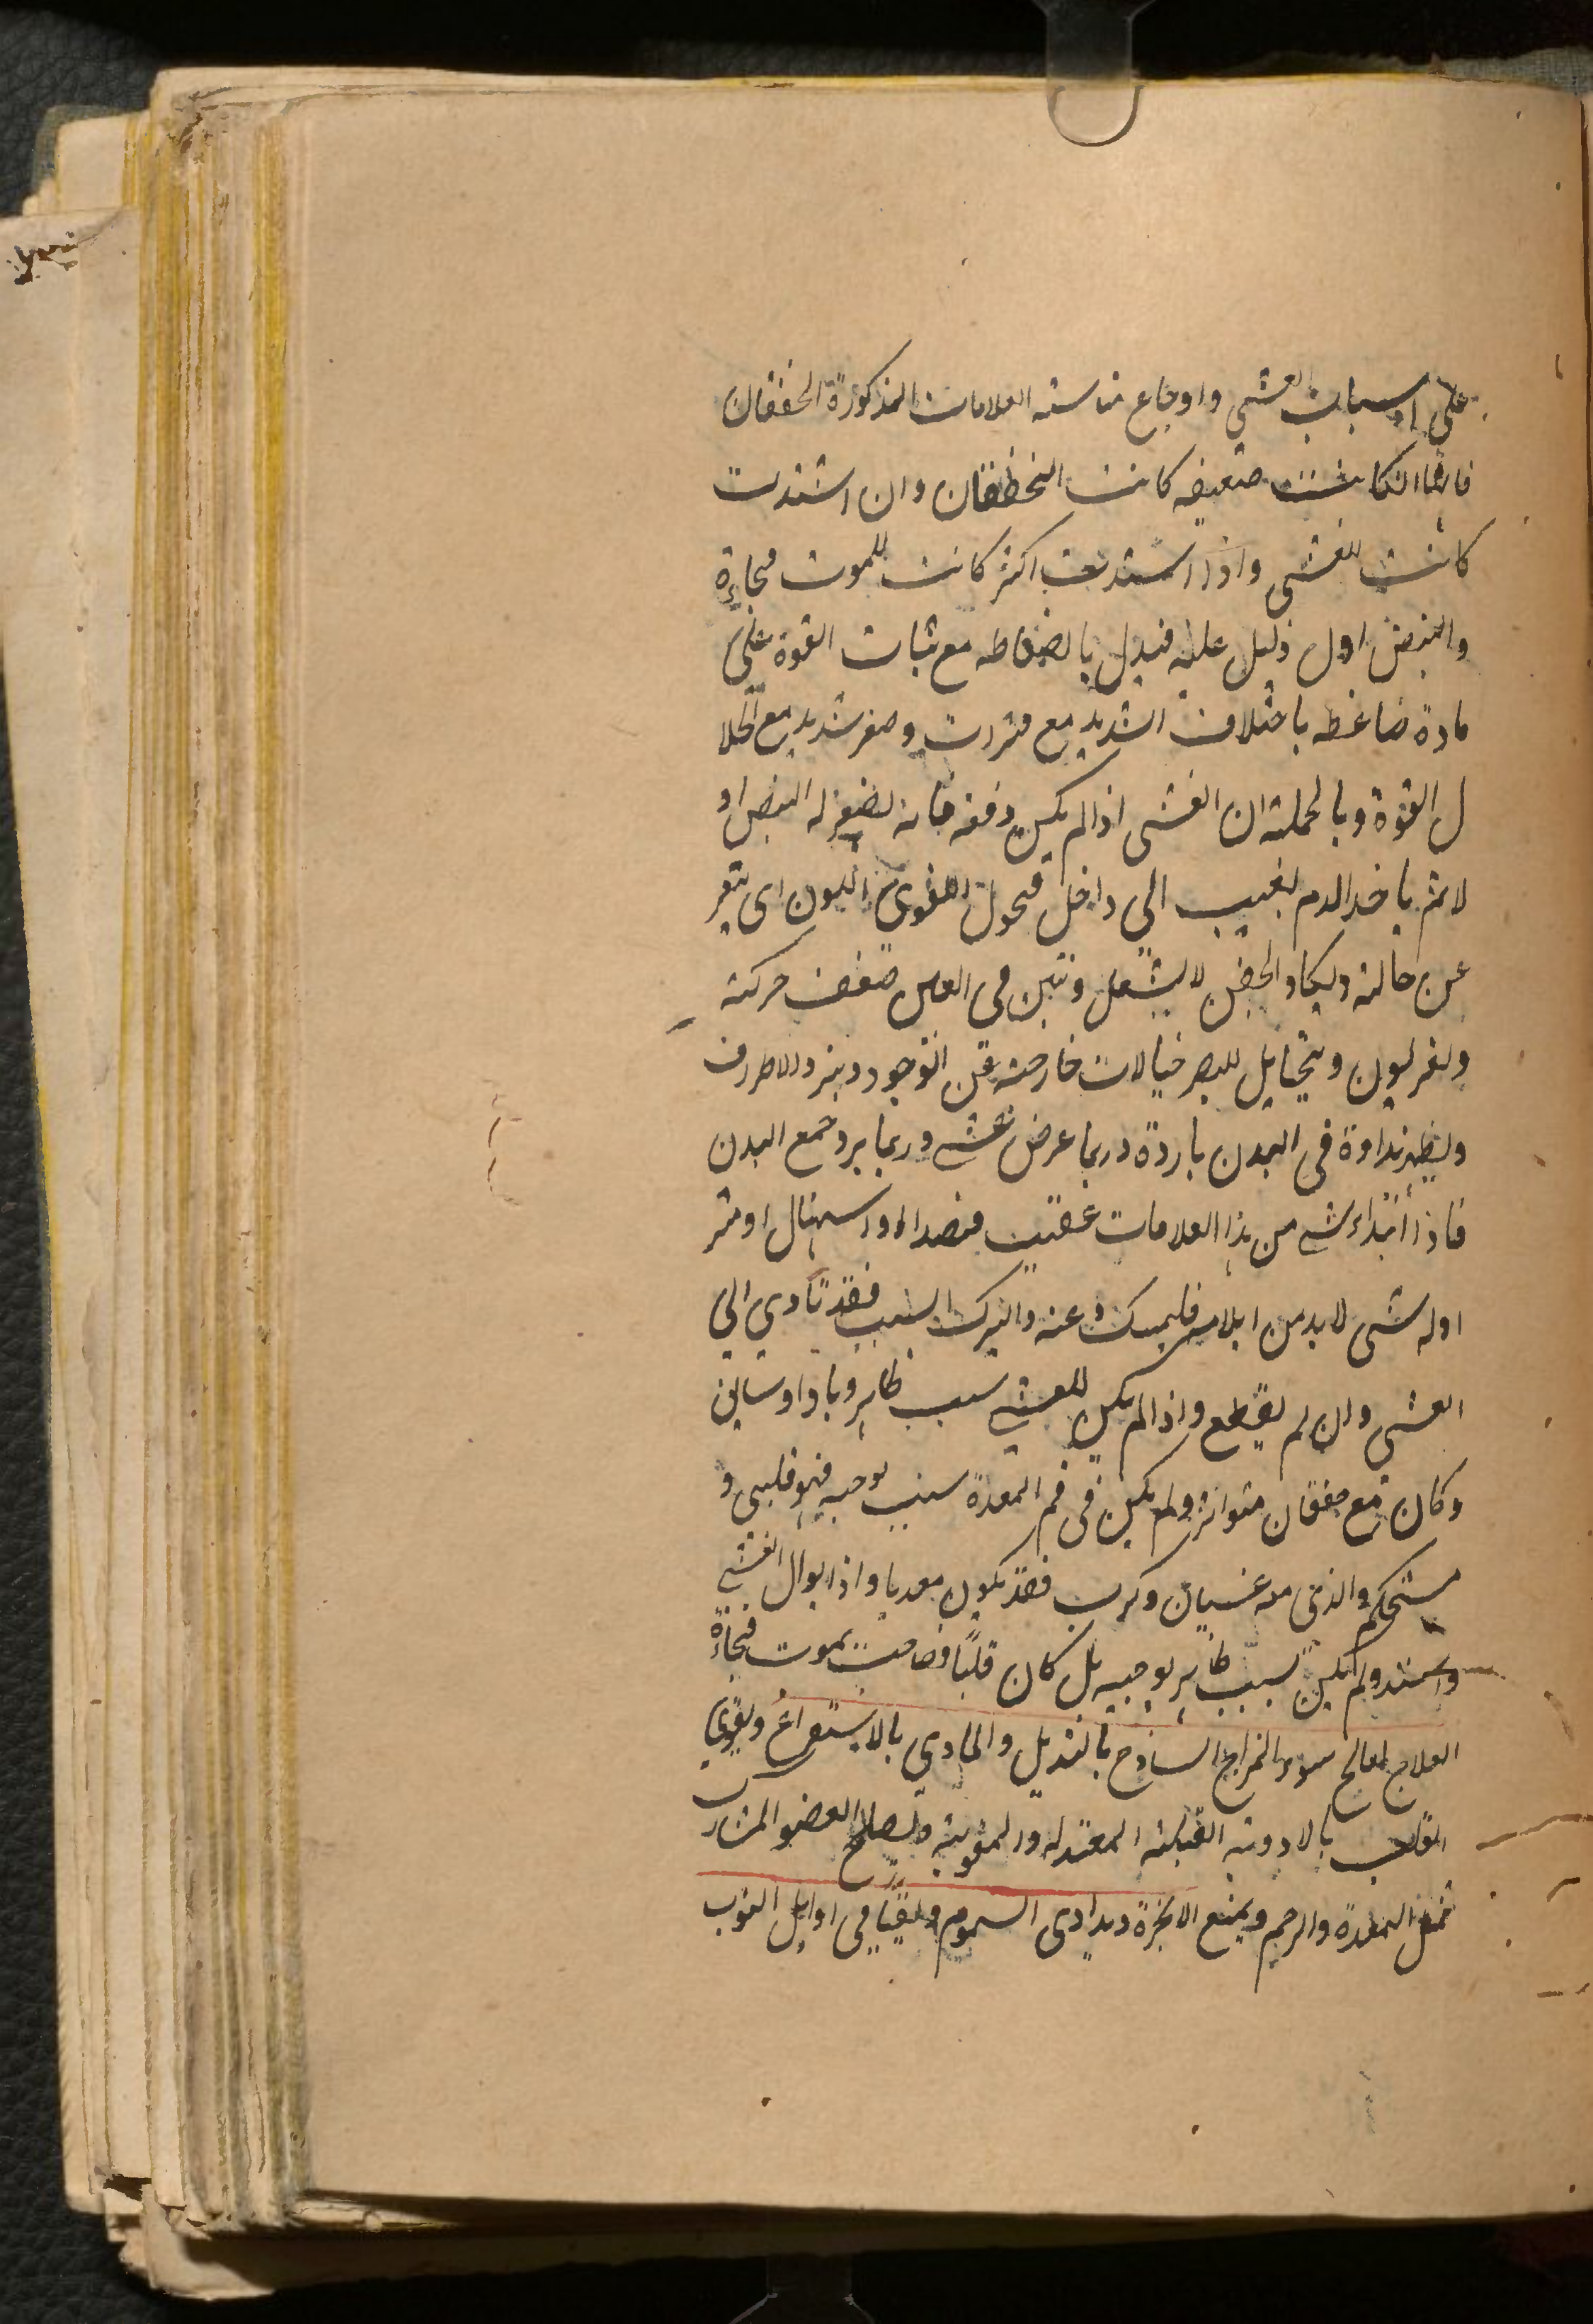 على اسباب الغشي واوجاع مناسبة العلامات المذكورة الخفقان
فانها اذا كانت ضعيفه كانت الخفقان وان اشتدت
كانت للغشى واذا اشتدت اكثر كانت للموت فجاءة
والنبض اول دليل عليه فيدل بانضغاطه مع ثبات القوة على
مادة ضاغطه باختلاف الشديد مع فترات وصغر شديد مع انحلا
ل القوة وبالجملة ان الغشى اذا لم يكن دفعه فانه يصغر له النبض او
لا ثم ياخذ الدم يغيب الى داخل فتحول اللون اى يتغير
عن حالته ويكاد الجفن لا يشتعل وتبين فى العين ضعف حركته
وتغير لون ويتخايل للبصر خيالات خارجة عن الوجود ويبرد الاطراف
ويظهر نداوة فى البدن باردة وربما عرض غشى وربما برد جميع البدن
فاذا ابتداء شى من هذا العلامات عقيب فصد او اسهال او
اوله شى لا بد من ايلامه فليمسك عنه واليترك السبب فقد تادي الي
الغشي وان لم يقطع واذا لم يكن للغشي سبب ظاهر وباد او سابق
وكان مع خفقان متواتر ولم يكن فى فم المعدة سبب يوجبه فهو قلبى و
مستحكم والذى معه غشيان وكرب فقد يكون معديا واذا توال الغشى
واشتد ولم يكن سبب ظاهر يوجبه بل كان قلبيًا فصاحبه يموت فجاءة
العلاج يعالج سوء المزاج الساذج بالتبديل والمادي بالاستفراغ ويقوي
القلب بالادوية القلبية المعتدلة والمقوية ويصلح العضو المشارك
المعدة والرحم ويمنع الابخرة ويداوى السموم ويقيأ في اوايل النوب